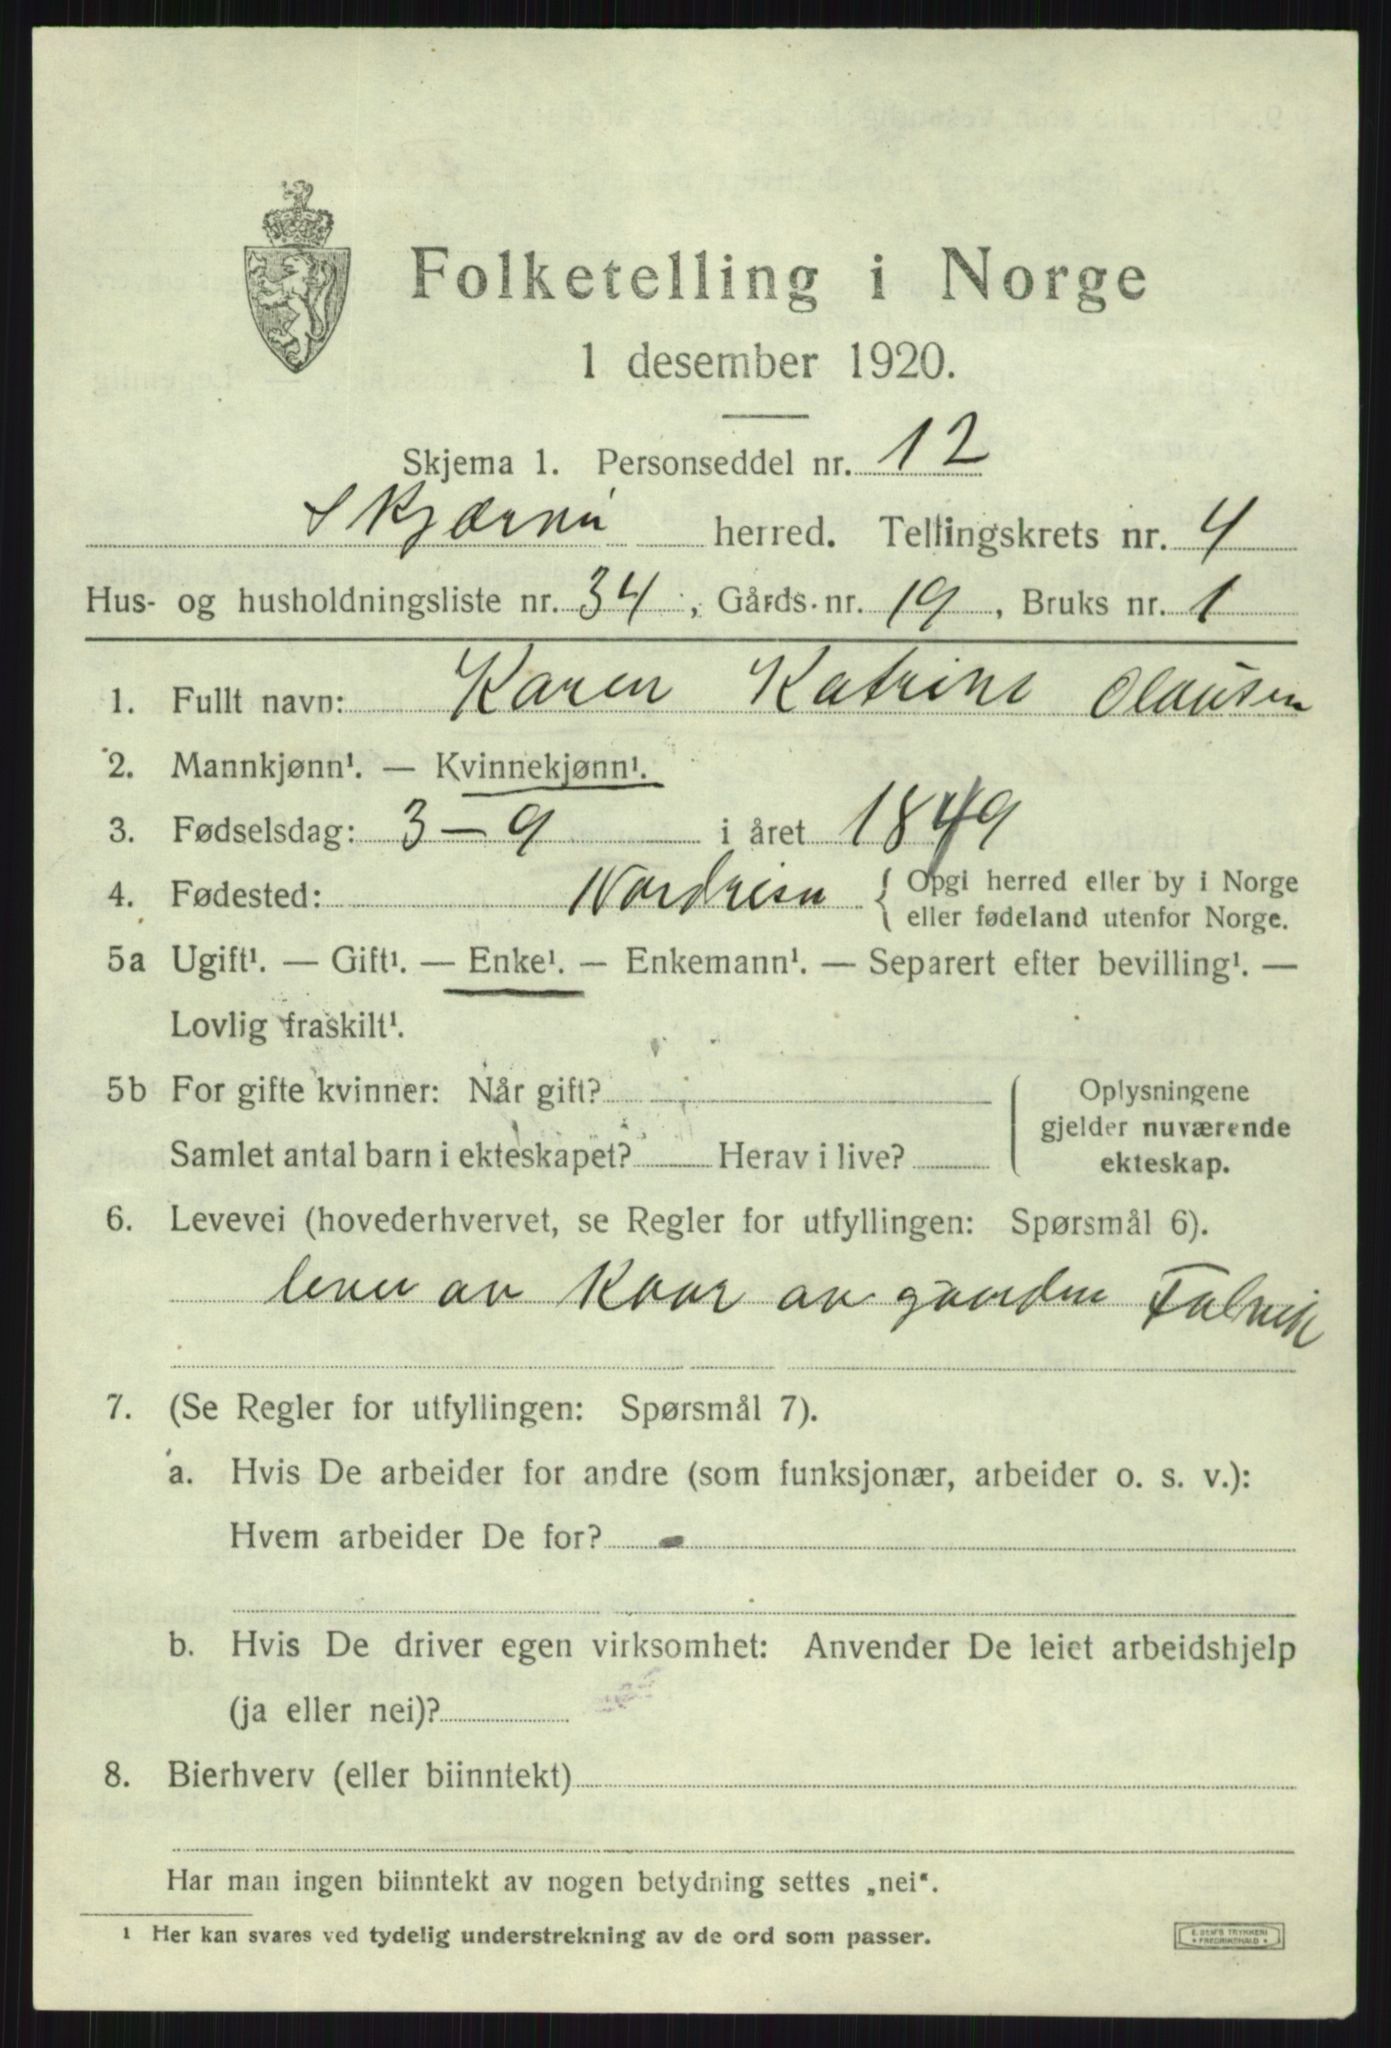 Folketelling i Norge
1 desember 1920.
Skjema 1. Personseddel nr. 12
Skjærvö herred. Tellingskrets nr. 4
Hus- og husholdningsliste nr. 34, Gårds nr. 19, Bruks nr. 1
1. Fullt navn: Karen Katrine Olausen
2. Mannkjønn¹. — Kvinnekjønn¹.
3. Fødselsdag: 3 – 9 i året 1849
4. Fødested: Nordreisa { Opgi herred eller by i Norge
eller fødeland utenfor Norge.
5a Ugift¹. — Gift¹. — Enke¹. — Enkemann¹. — Separert efter bevilling¹. —
Lovlig fraskilt¹.
5b For gifte kvinner: Når gift?
Samlet antal barn i ekteskapet? Herav i live?
Oplysningene
gjelder nuværende
ekteskap.
6. Levevei (hovederhvervet, se Regler for utfyllingen: Spørsmål 6).
lever av Kaar av gaarden
7. (Se Regler for utfyllingen: Spørsmål 7).
a. Hvis De arbeider for andre (som funksjonær, arbeider o. s. v.):
Hvem arbeider De for? -
b. Hvis De driver egen virksomhet: Anvender De leiet arbeidshjelp
(ja eller nei)?
8. Bierhverv (eller biinntekt)
Har man ingen biinntekt av nogen betydning settes „nei“.
¹ Her kan svares ved tydelig understrekning av de ord som passer.
E. SEM'S TRYKKERI
FREDRIKSHALD